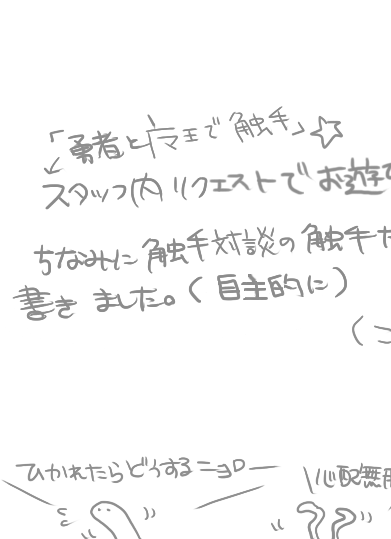 「勇者と魔王で触手」☆
スタッフ内リクエストでお遊
ちなみに触手対談の触手
書きました。(自主的に)
(こ
ひかれたらどうするニョロー
心配無用